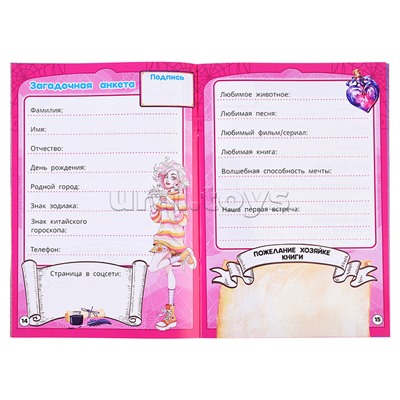 Загадочная анкета
Подпись
Фамилия:
Имя:
Отчество:
День рождения:
Родной город:
Знак зодиака:
Знак китайского
гороскопа:
Телефон:
Страница в соцсети:
14
Любимое животное:
Любимая песня:
Любимый фильм/сериал:
Любимая книга:
Волшебная способность мечты:
Наша первая встреча:
ПОЖЕЛАНИЕ ХОЗЯЙКЕ
КНИГИ
15
ural.toys